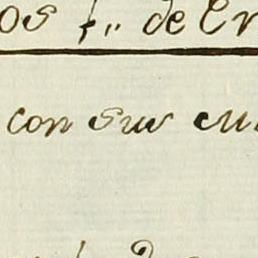 os f.. de Cr
con sus cu